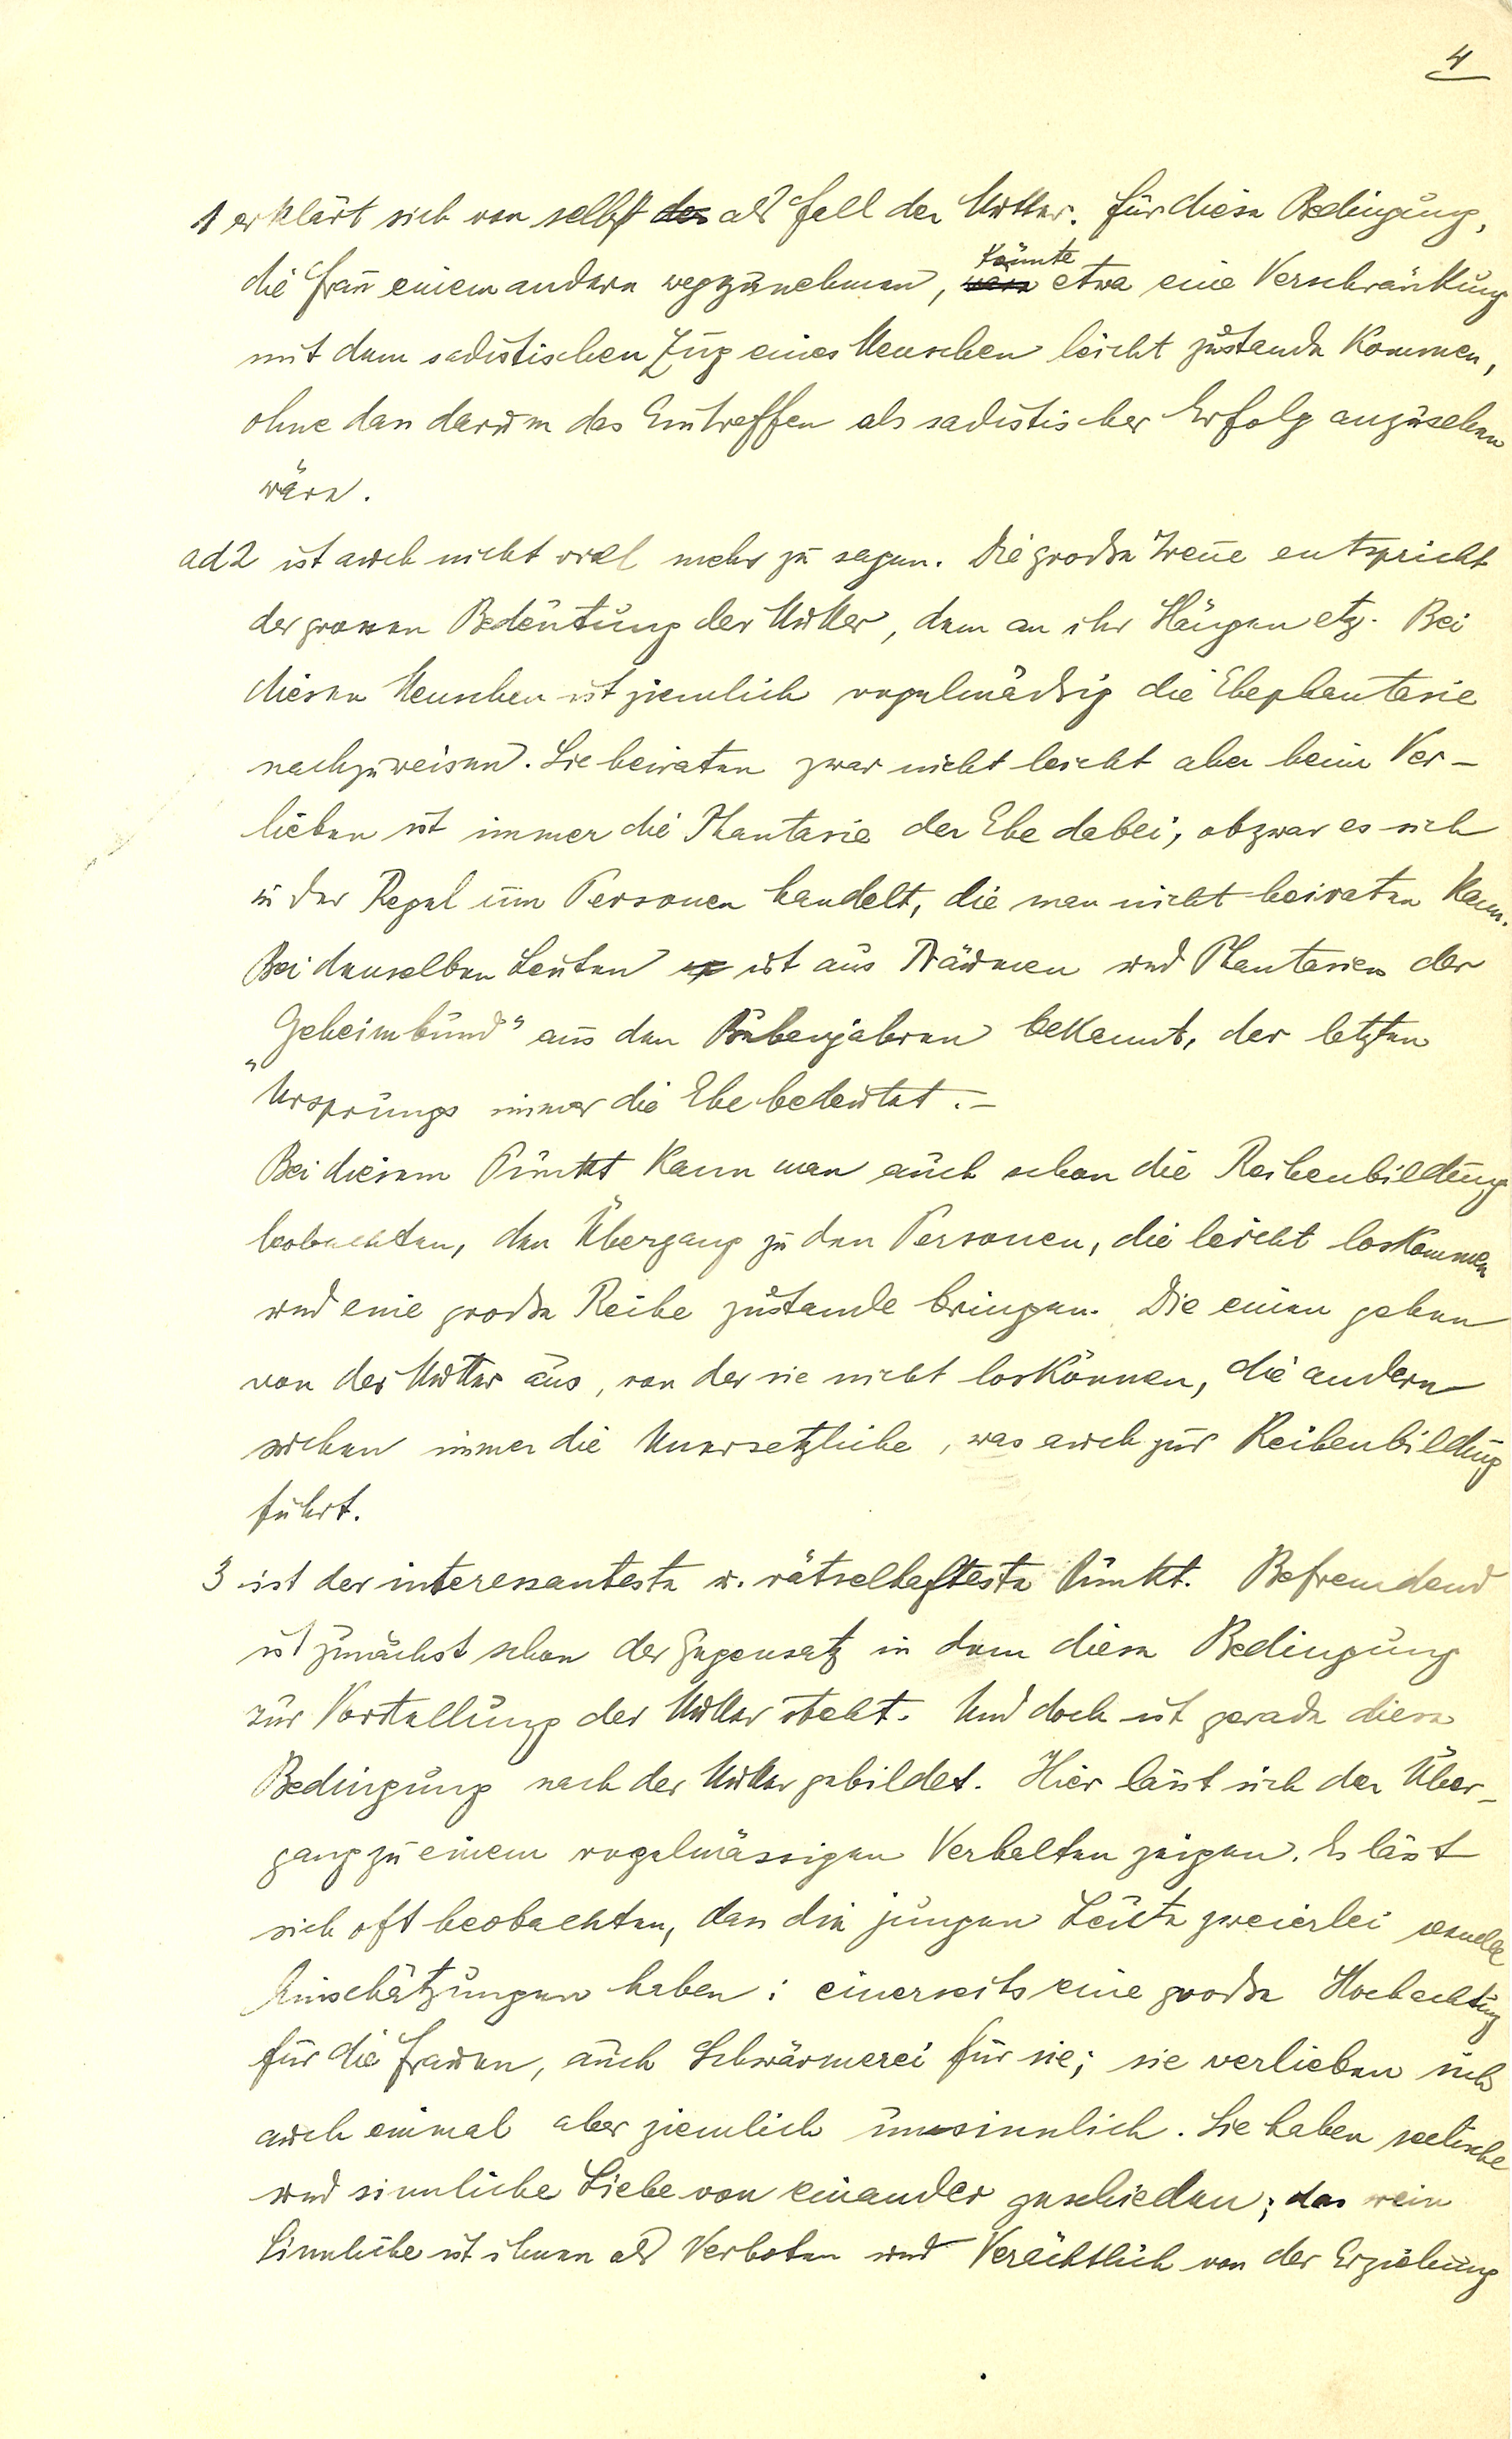 4
1 erklärt sich von selbst des als Fall der Mutter. Für diese Bedingung,
die Frau einem andern wegzunehmen, könnte etwa eine Verschränkung
mit dem sadistischen Zug eines Menschen leicht zustande kommen,
ohne dass darum das Eintreffen als sadistischer Erfolg anzusehen
wäre.
ad 2 ist auch nicht viel mehr zu sagen. Die große Treue entspricht
der grossen Bedeutung der Mutter, dem an ihr Hängen etz. Bei
diesen Menschen ist ziemlich regelmäßig die Ehephantasie
nachzuweisen. Sie heiraten zwar nicht leicht aber beim Ver-
lieben ist immer die Phantasie der Ehe dabei, obzwar es sich
in der Regel um Personen handelt, die man nicht heiraten kann.
Bei denselben Leuten ist aus Träumen und Phantasien der
„Geheimbund" aus den Bubenjahren bekannt, der letzten
Ursprungs immer die Ehe bedeutet. –
Bei diesem Punkt kann man auch schon die Reihenbildung
beobachten, den Übergang zu den Personen, die leicht loskommen
und eine große Reihe zustande bringen. Die einen gehen
von der Mutter aus, von der sie nicht loskönnen, die andern
suchen immer die Unersetzliche, was auch zur Reihenbildung
führt.
3 ist der interessanteste u. rätselhafteste Punkt. Befremdend
ist zunächst schon der Gegensatz in dem diese Bedingung
zur Vorstellung der Mutter steht. Und doch ist gerade diese
Bedingung nach der Mutter gebildet. Hier lässt sich der Über-
gang zu einem regelmässigen Verhalten zeigen. Es lässt
sich oft beobachten, dass die jungen Leute zweierlei sexuelle
Einschätzungen haben: einerseits eine große Hochachtung
für die Frauen, auch Schwärmerei für sie; sie verlieben sich
auch einmal aber ziemlich unsinnlich. Sie haben seelische
und sinnliche Liebe von einander geschieden; das rein
Sinnliche ist ihnen als Verboten und Verächtlich von der Erziehung